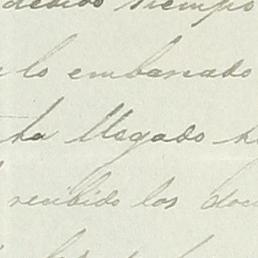 debido tiempo
lo embarcado
ha llegado
recibido los